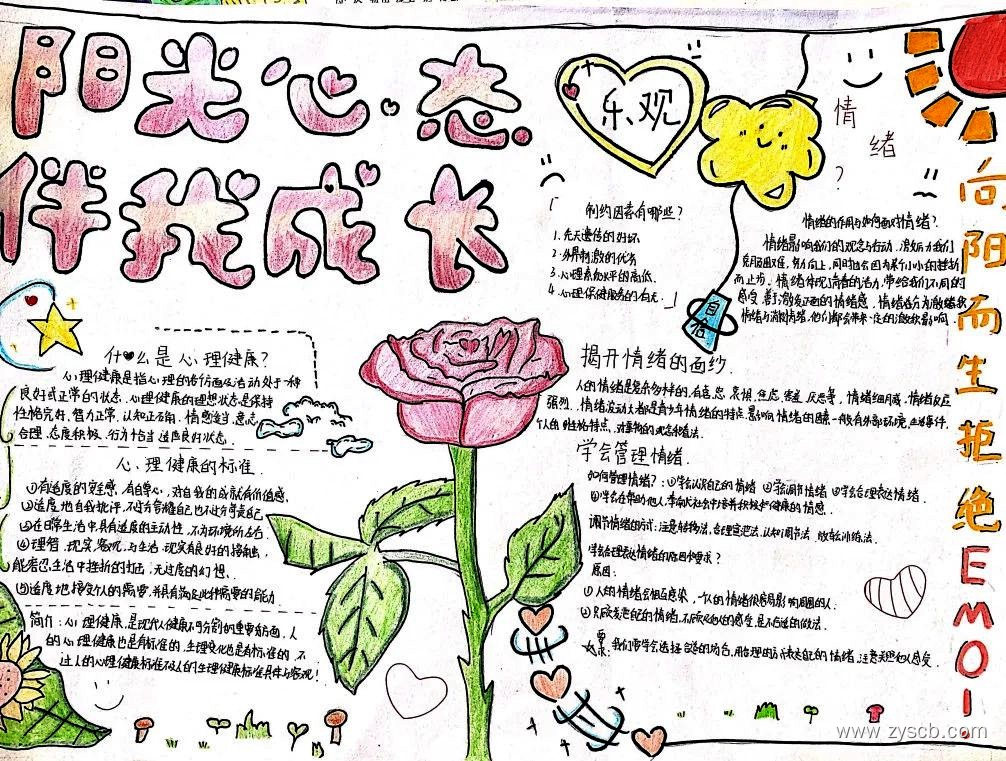 阳光心态
伴我成长
乐观
情绪
?
自信
向阳而生拒绝EMO!
「制约因素有哪些?
1.先天遗传的好坏
2.外界刺激的优劣
3.心理素质水平的高低
4.心理保健服务的有无」
情绪的作用与如何面对情绪?
情绪影响我们的观念与行动,激励我们
克服困难,努力向上,同时也会因为某个小小的挫折
而止步。情绪体现青春的活力,带给我们不同的
什么是心理健康?
心理健康是指心理的各方面及活动处于一种
良好或正常的状态。心理健康的理想状态是保持
性格完好、智力正常、认知正确、情感适当、意志
合理、态度积极、行为恰当、适应良好状态。
心理健康的标准
①有适度的安全感,有自尊心,对自我的成就有价值感。
②适度地自我批评,不过分夸耀自己也不过分苛责自己
③在日常生活中具有适度的主动性,不为环境所左右
④理智、现实、客观,与生活现实有良好的接触,
能容忍生活中挫折的打击,无过度的幻想。
⑤适度地接受个人的需要,并具有满足此种需要的能力
简介:心理健康是现代人健康不可分割的重要方面,人
的心理健康也是有标准的。生理变化也是有标准的,不
过人的心理健康标准不及人的生理健康标准具体与客观!
揭开情绪的面纱
人的情绪是复杂多样的,有喜、怒、哀、惧、焦虑、害羞、厌恶等,情绪细腻,情绪反应
强烈,情绪波动大都是青少年情绪的特点。影响情绪的因素一般有外部环境、生活事件、
个人的性格特点、对事物的观念和看法。
学会管理情绪.
如何管理情绪?:①学会认识自己的情绪 ②学会调节情绪 ③学会合理表达情绪。
调节情绪的方式:注意转移法、合理宣泄法、认知调节法、放松训练法。
学会合理表达情绪的原因和要求?
原因:
①人的情绪会相互感染,一人的情绪很容易影响周围的人.
②只顾表达自己的情绪,不顾及他人的感受,是不合适的做法.
要求:我们需学会选择合适的场合,用合理的方式表达自己的情绪,注意关照他人感受.
www.zyscb.com